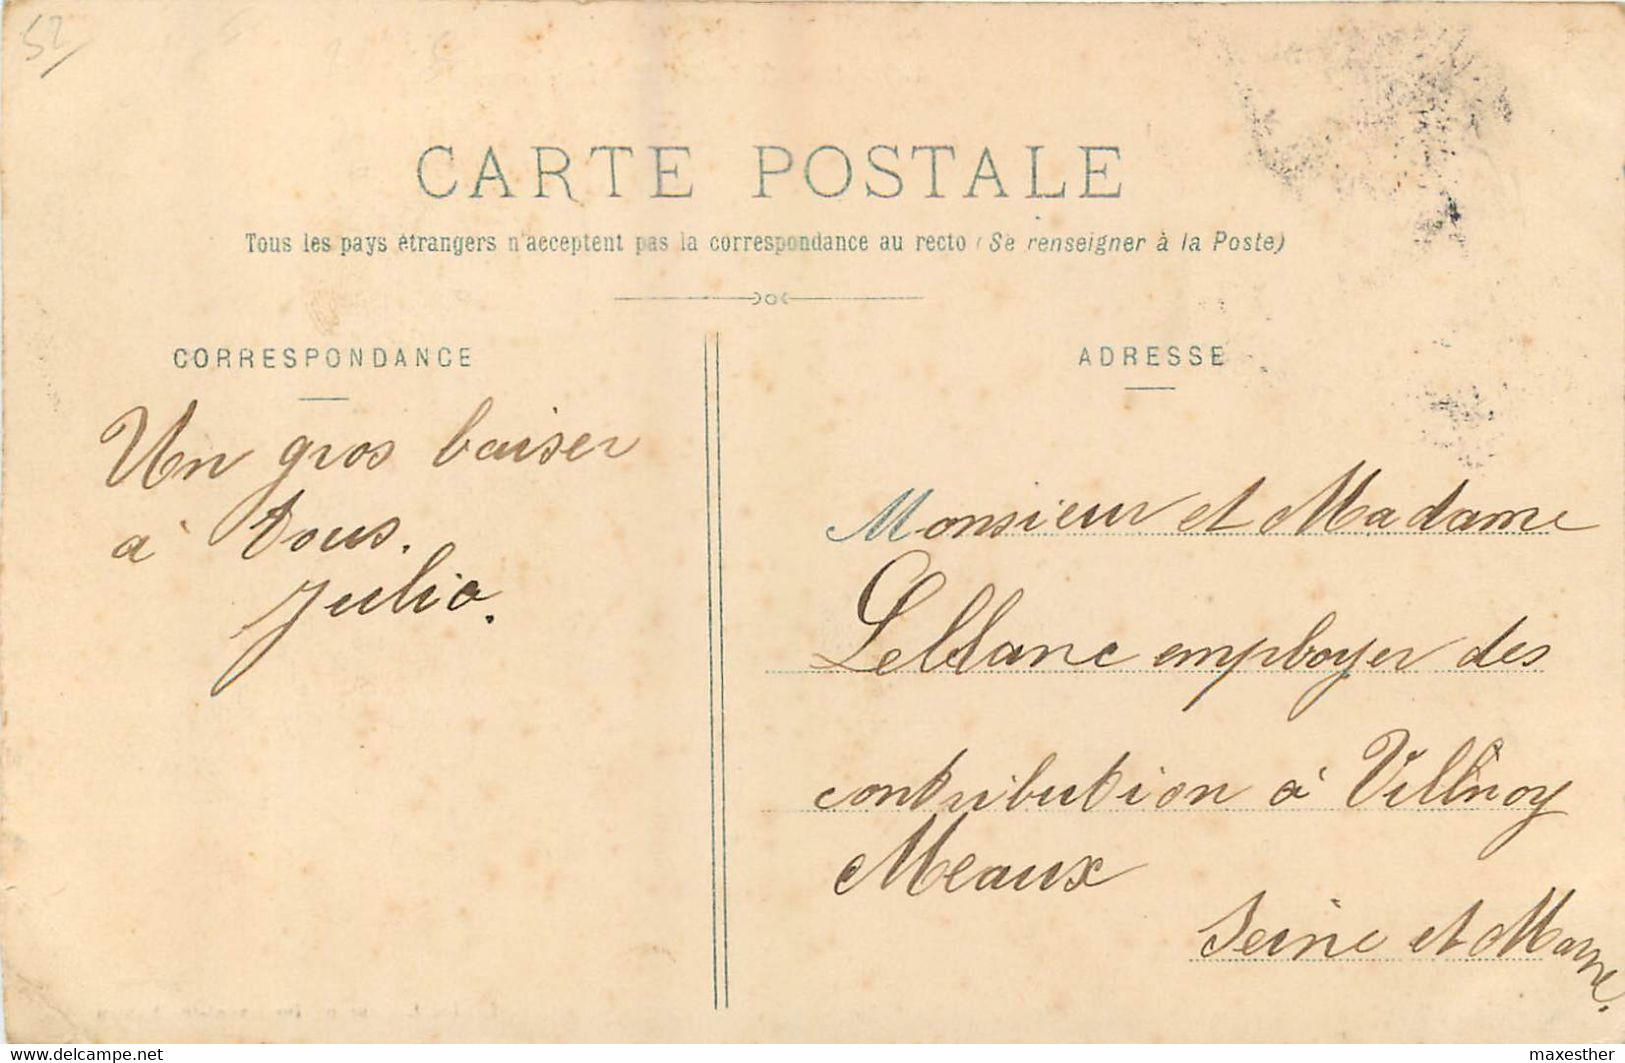 52
CARTE POSTALE
Tous les pays étrangers n'acceptent pas la correspondance au recto (Se renseigner à la Poste)
CORRESPONDANCE
Un gros baiser
à tous.
Julia.
ADRESSE
Monsieur et Madame
Leblanc employer des
contribution à Villenoy
Meaux
Seine et Marne.
www.delcampe.net
maxesther